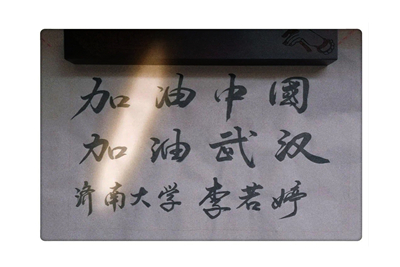 加油中國
加油武汉
济南大学 李若婷